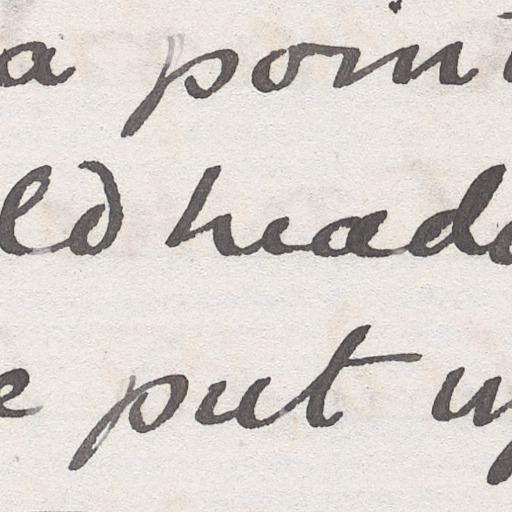 a point
ld heado
e put up